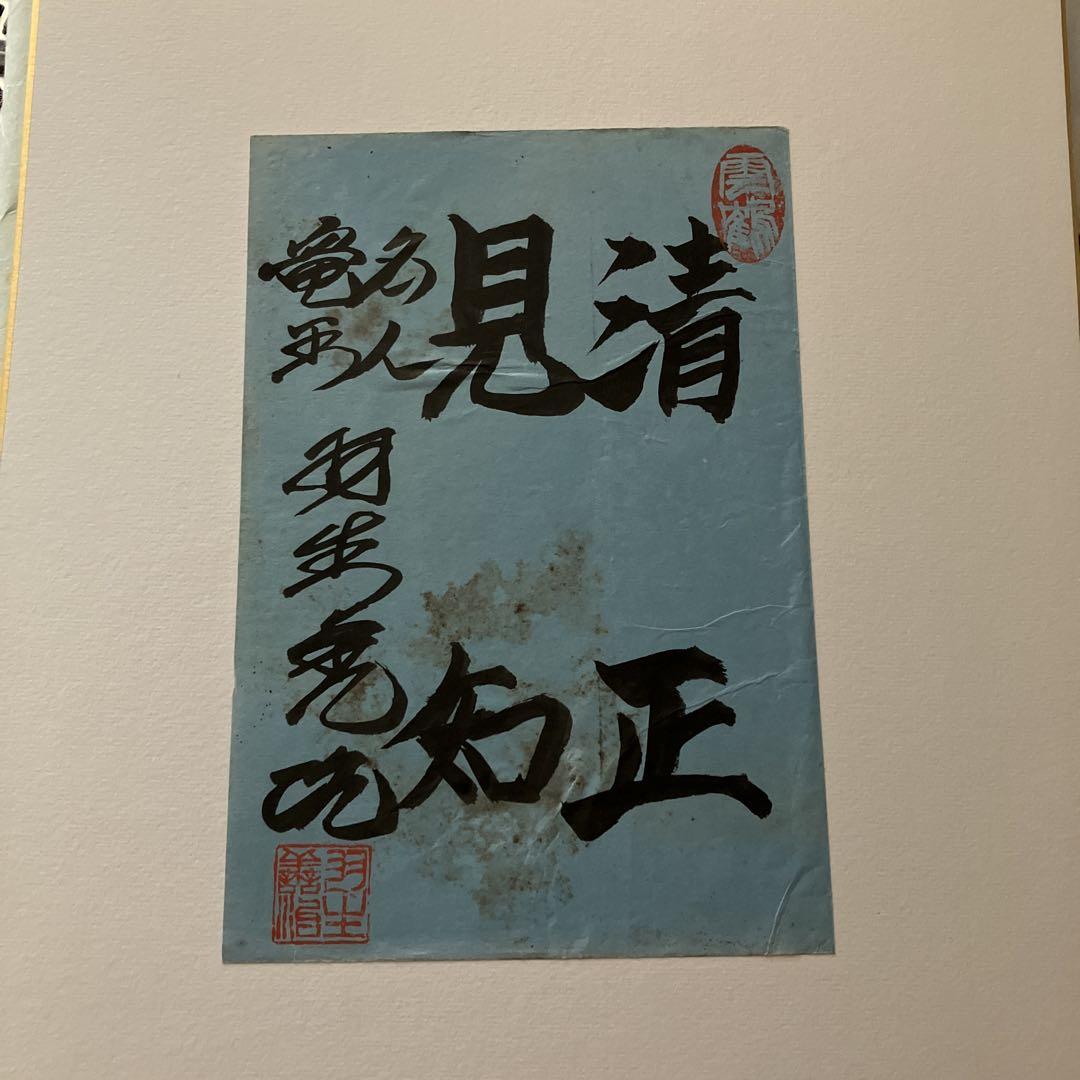 雲鶴
清正
見知
名人
竜王
羽生善治
羽生
善治